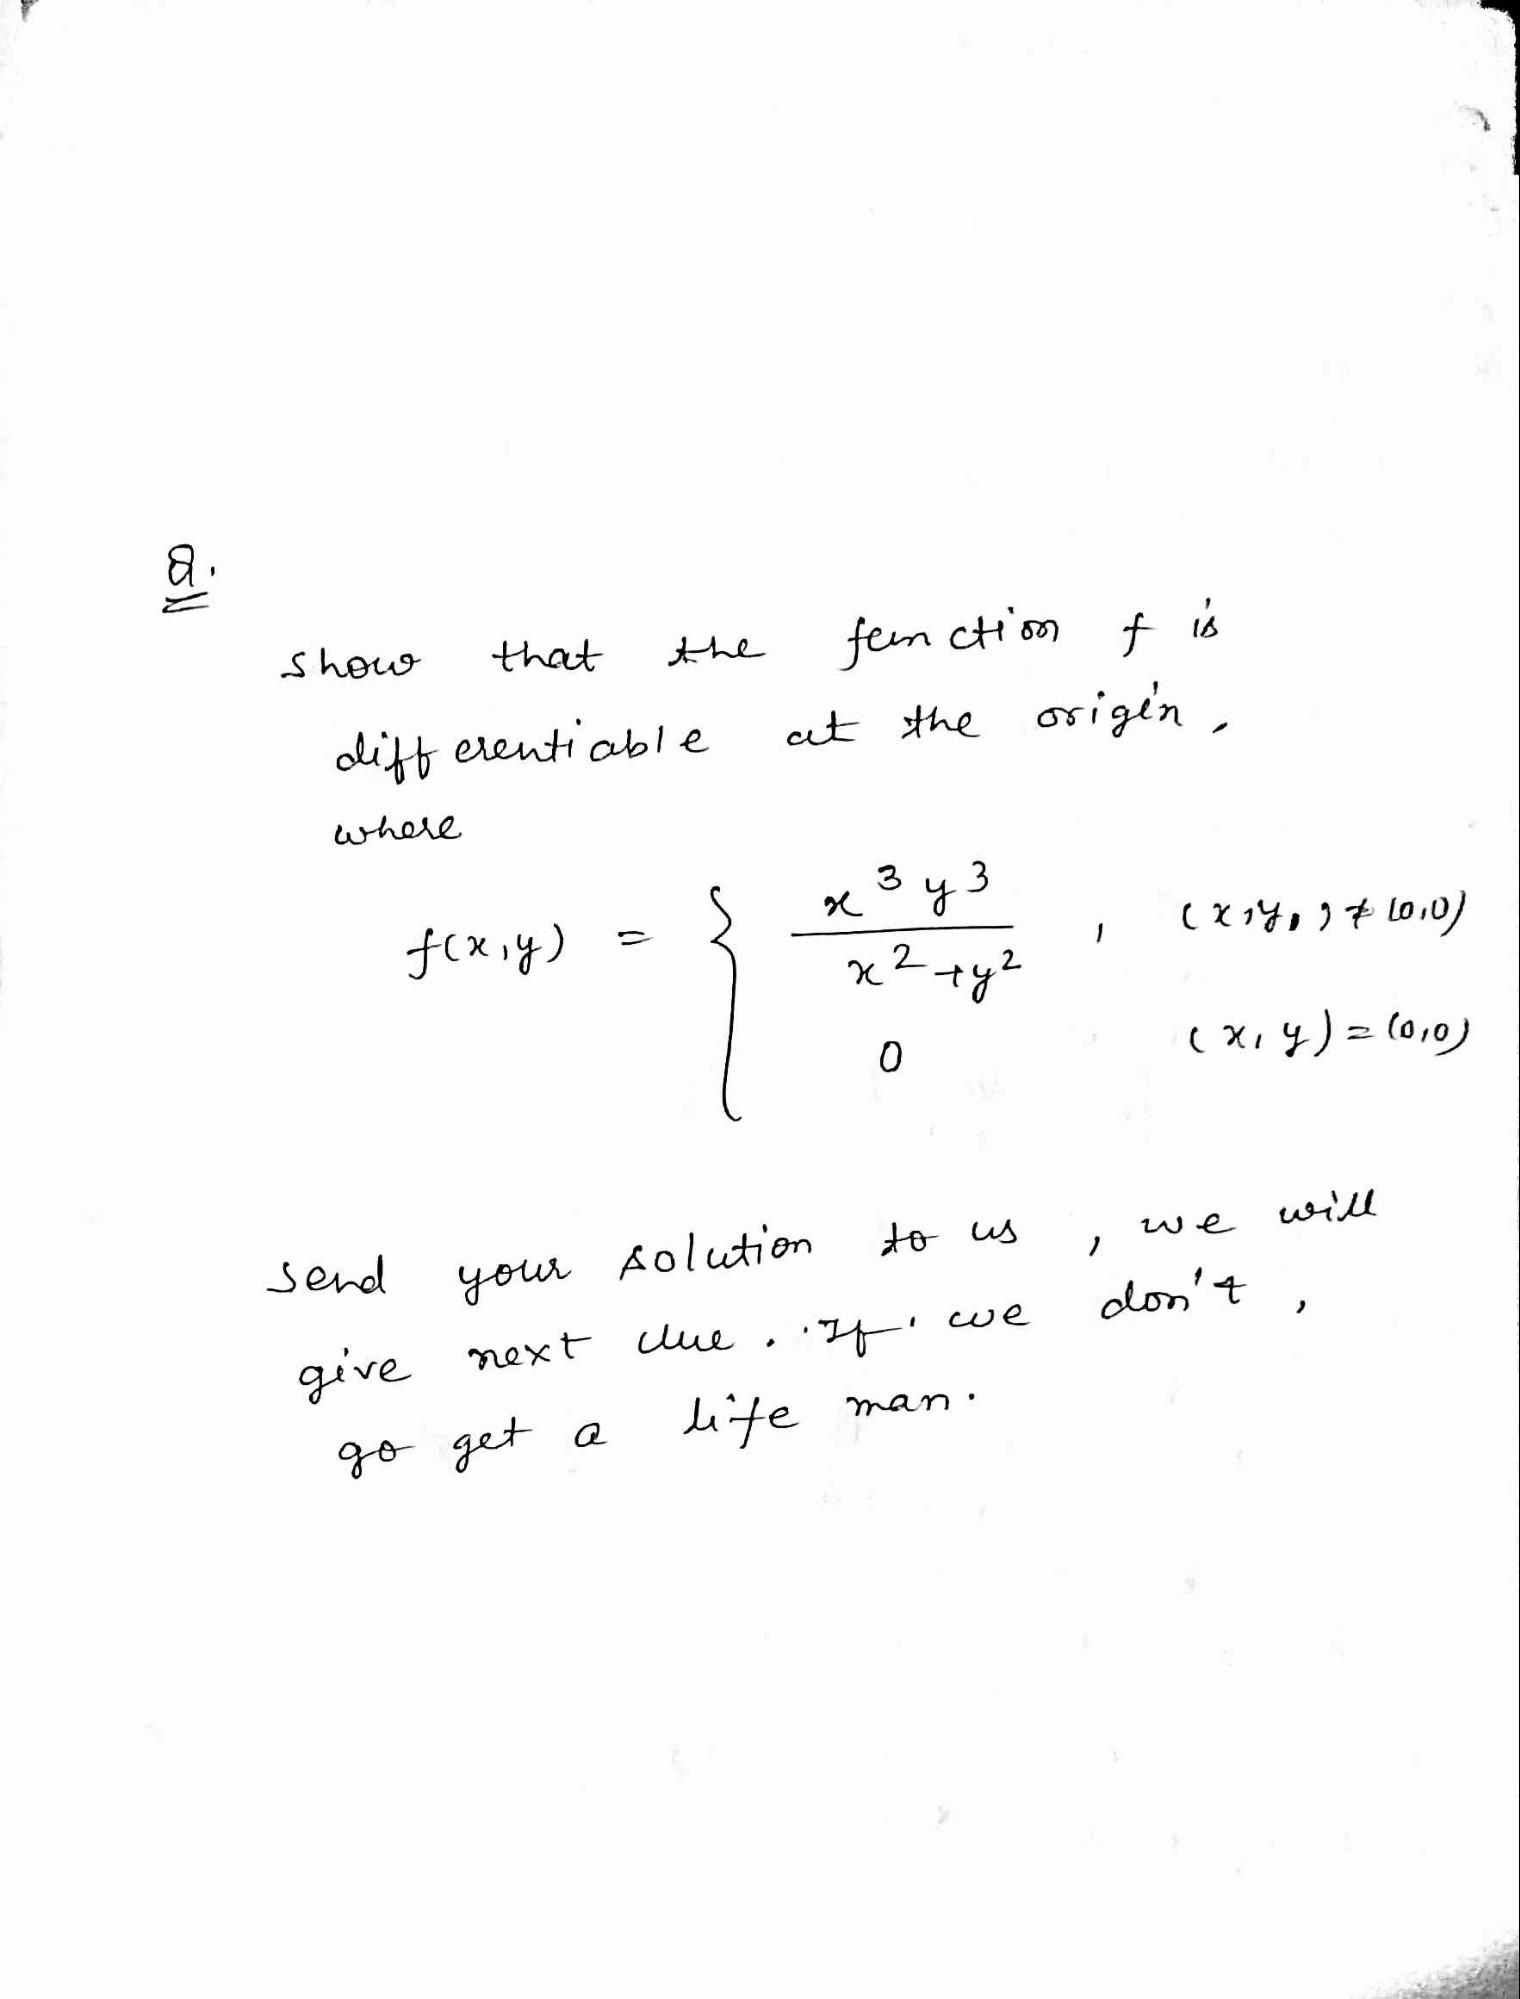 Q.
show that the function f is
differentiable at the origin,
where
f(x,y) = { x³y³ / x²+y² , (x,y,) ≠ (0,0)
0 (x,y) = (0,0)
send your solution to us, we will
give next clue. 'If' we don't,
go get a life man.